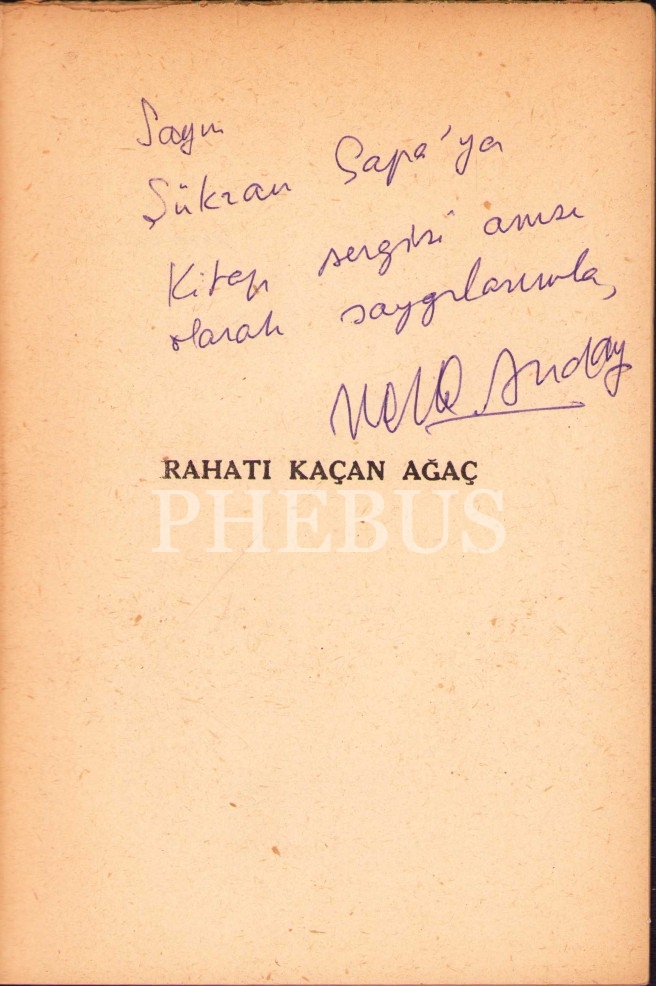 Sayın
Şükran Sapa'ya
Kitap sergisi anısı
olarak saygılarımla,
Melih Anday
RAHATI KAÇAN AĞAÇ
PHEBUS